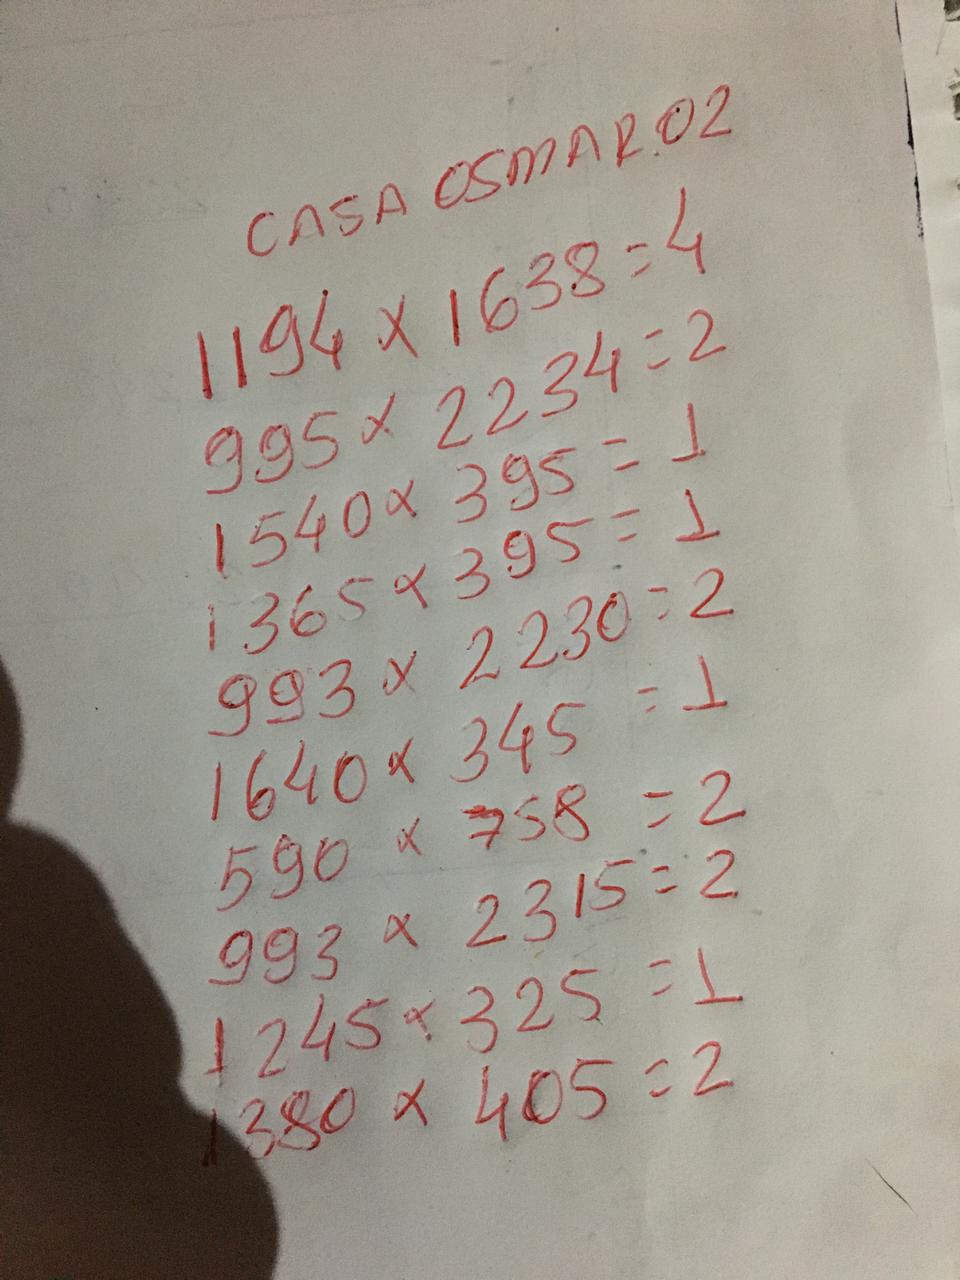 CASA OSMAR.02
1194 x 1638 = 4
995 x 2234 = 2
1540 x 395 = 1
1365 x 395 = 1
993 x 2230 = 2
1640 x 345 = 1
590 x 758 = 2
993 x 2315 = 2
1245 x 325 = 1
1380 x 405 = 2